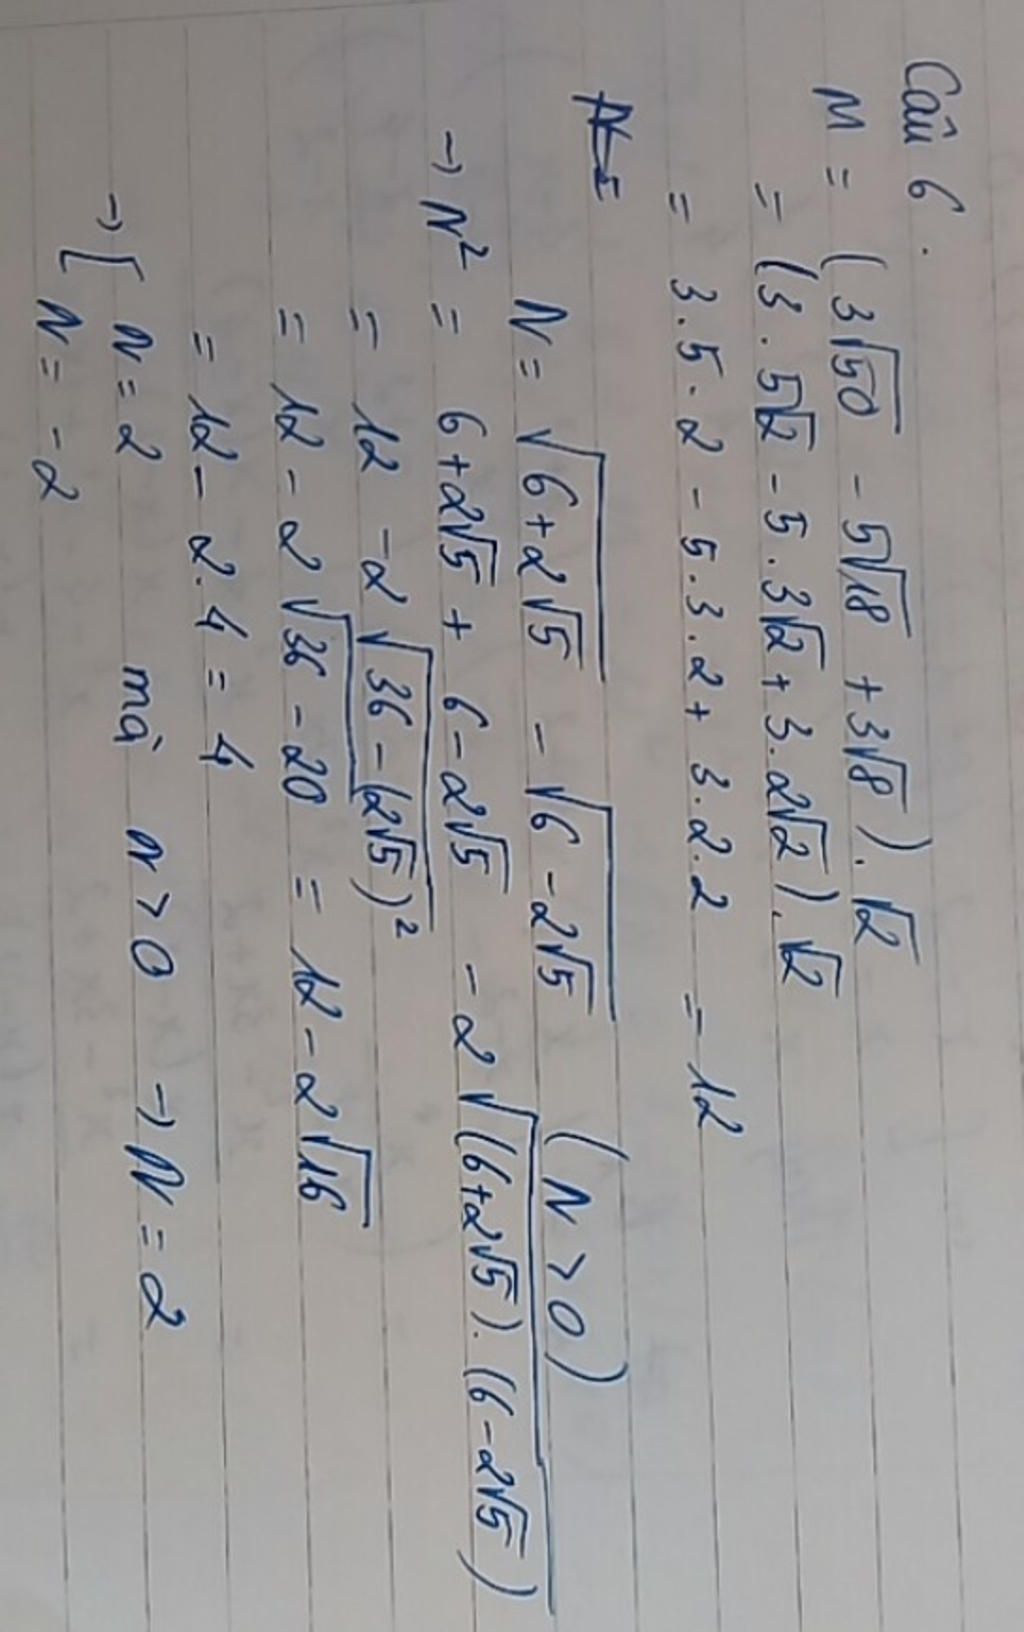 Câu 6.
M = (3√50 - 5√18 + 3√8).√2
= (3.5√2 - 5.3√2 + 3.2√2).√2
= 3.5.2 - 5.3.2 + 3.2.2 = 12
N = √(6+2√5) - √(6-2√5) (N > 0)
→ N² = 6+2√5 + 6-2√5 - 2√((6+2√5).(6-2√5))
= 12 - 2√(36-(2√5)²)
= 12 - 2√(36-20) = 12 - 2√16
= 12 - 2.4 = 4
→ [ N = 2 mà n > 0 → N = 2
N = -2